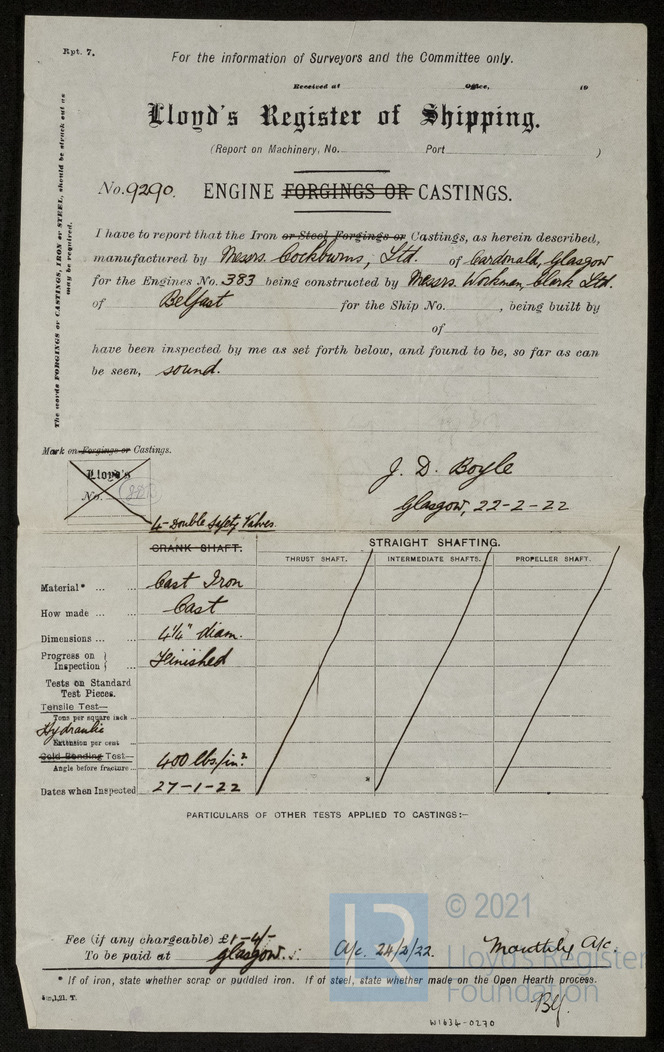 Rpt. 7.
For the information of Surveyors and the Committee only.
Received at Office, 19
Lloyd's Register of Shipping.
(Report on Machinery, No. Port )
No. 9290. ENGINE FORGINGS OR CASTINGS.
The words FORGINGS or CASTINGS, IRON or STEEL, should be struck out as may be required.
I have to report that the Iron or Steel Forgings or Castings, as herein described,
manufactured by Messrs. Cockburns, Ltd. of Cardonald, Glasgow
for the Engines No. 383 being constructed by Messrs. Workman, Clark Ltd.
of Belfast for the Ship No. , being built by
of
have been inspected by me as set forth below, and found to be, so far as can
be seen, sound.
Mark on Forgings or Castings.
Lloyd's
No.
J. D. Boyle
Glasgow, 22-2-22
4-Double Safety Valves.
CRANK SHAFT. STRAIGHT SHAFTING.
THRUST SHAFT. INTERMEDIATE SHAFTS. PROPELLER SHAFT.
Material* ... ... Cast Iron
How made ... ... Cast
Dimensions ... ... 4¼" diam.
Progress on Inspection } ... Finished
Tests on Standard
Test Pieces.
Tensile Test—
Tons per square inch ...
Hydraulic
Extension per cent ...
Cold Bending Test—
Angle before fracture ... 400 lbs/in.²
Dates when Inspected 27-1-22
PARTICULARS OF OTHER TESTS APPLIED TO CASTINGS:—
Fee (if any chargeable) £1-4/-
To be paid at Glasgow. A/c. 24/2/22. Monthly A/c.
* If of iron, state whether scrap or puddled iron. If of steel, state whether made on the Open Hearth process.
W1634-0270
© 2021
LR
Lloyd's Register
Foundation